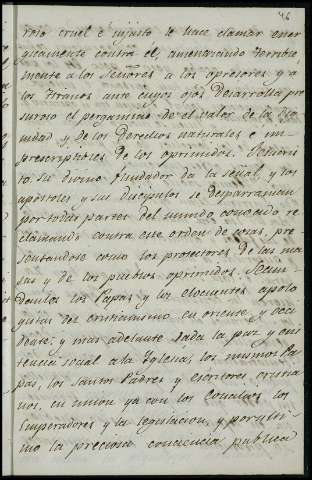 46
roso cruel e injusto le hace clamar ener
gicamente contra el, amenazando terrible
mente a los Señores a los opresores y a
los tiranos ante cuyos ojos desarrolla pre
suroso el pergamino de el valor de la
nidad y de los Derechos naturales e im
prescriptibles de los oprimidos. 
to su divino fundador da la señal, y los
apóstoles y sus discipulos se desparraman
por todas partes del mundo conocido re
clamando contra este orden de cosas, pre
sentandose como los protectores de las ma
sas y de los pueblos oprimidos. Secun
danlos los Papas y los elocuentes apolo
gistas del cristianismo en oriente y occi
dente: y mas adelante dada la paz y exis
tencia social a la Iglesia, los mismos Pa
pas, los Santos Padres y escritores cristia
nos, en union ya con los Concilios, los
Emperadores y la legislacion, y por ulti
mo la preciosa conciencia publica